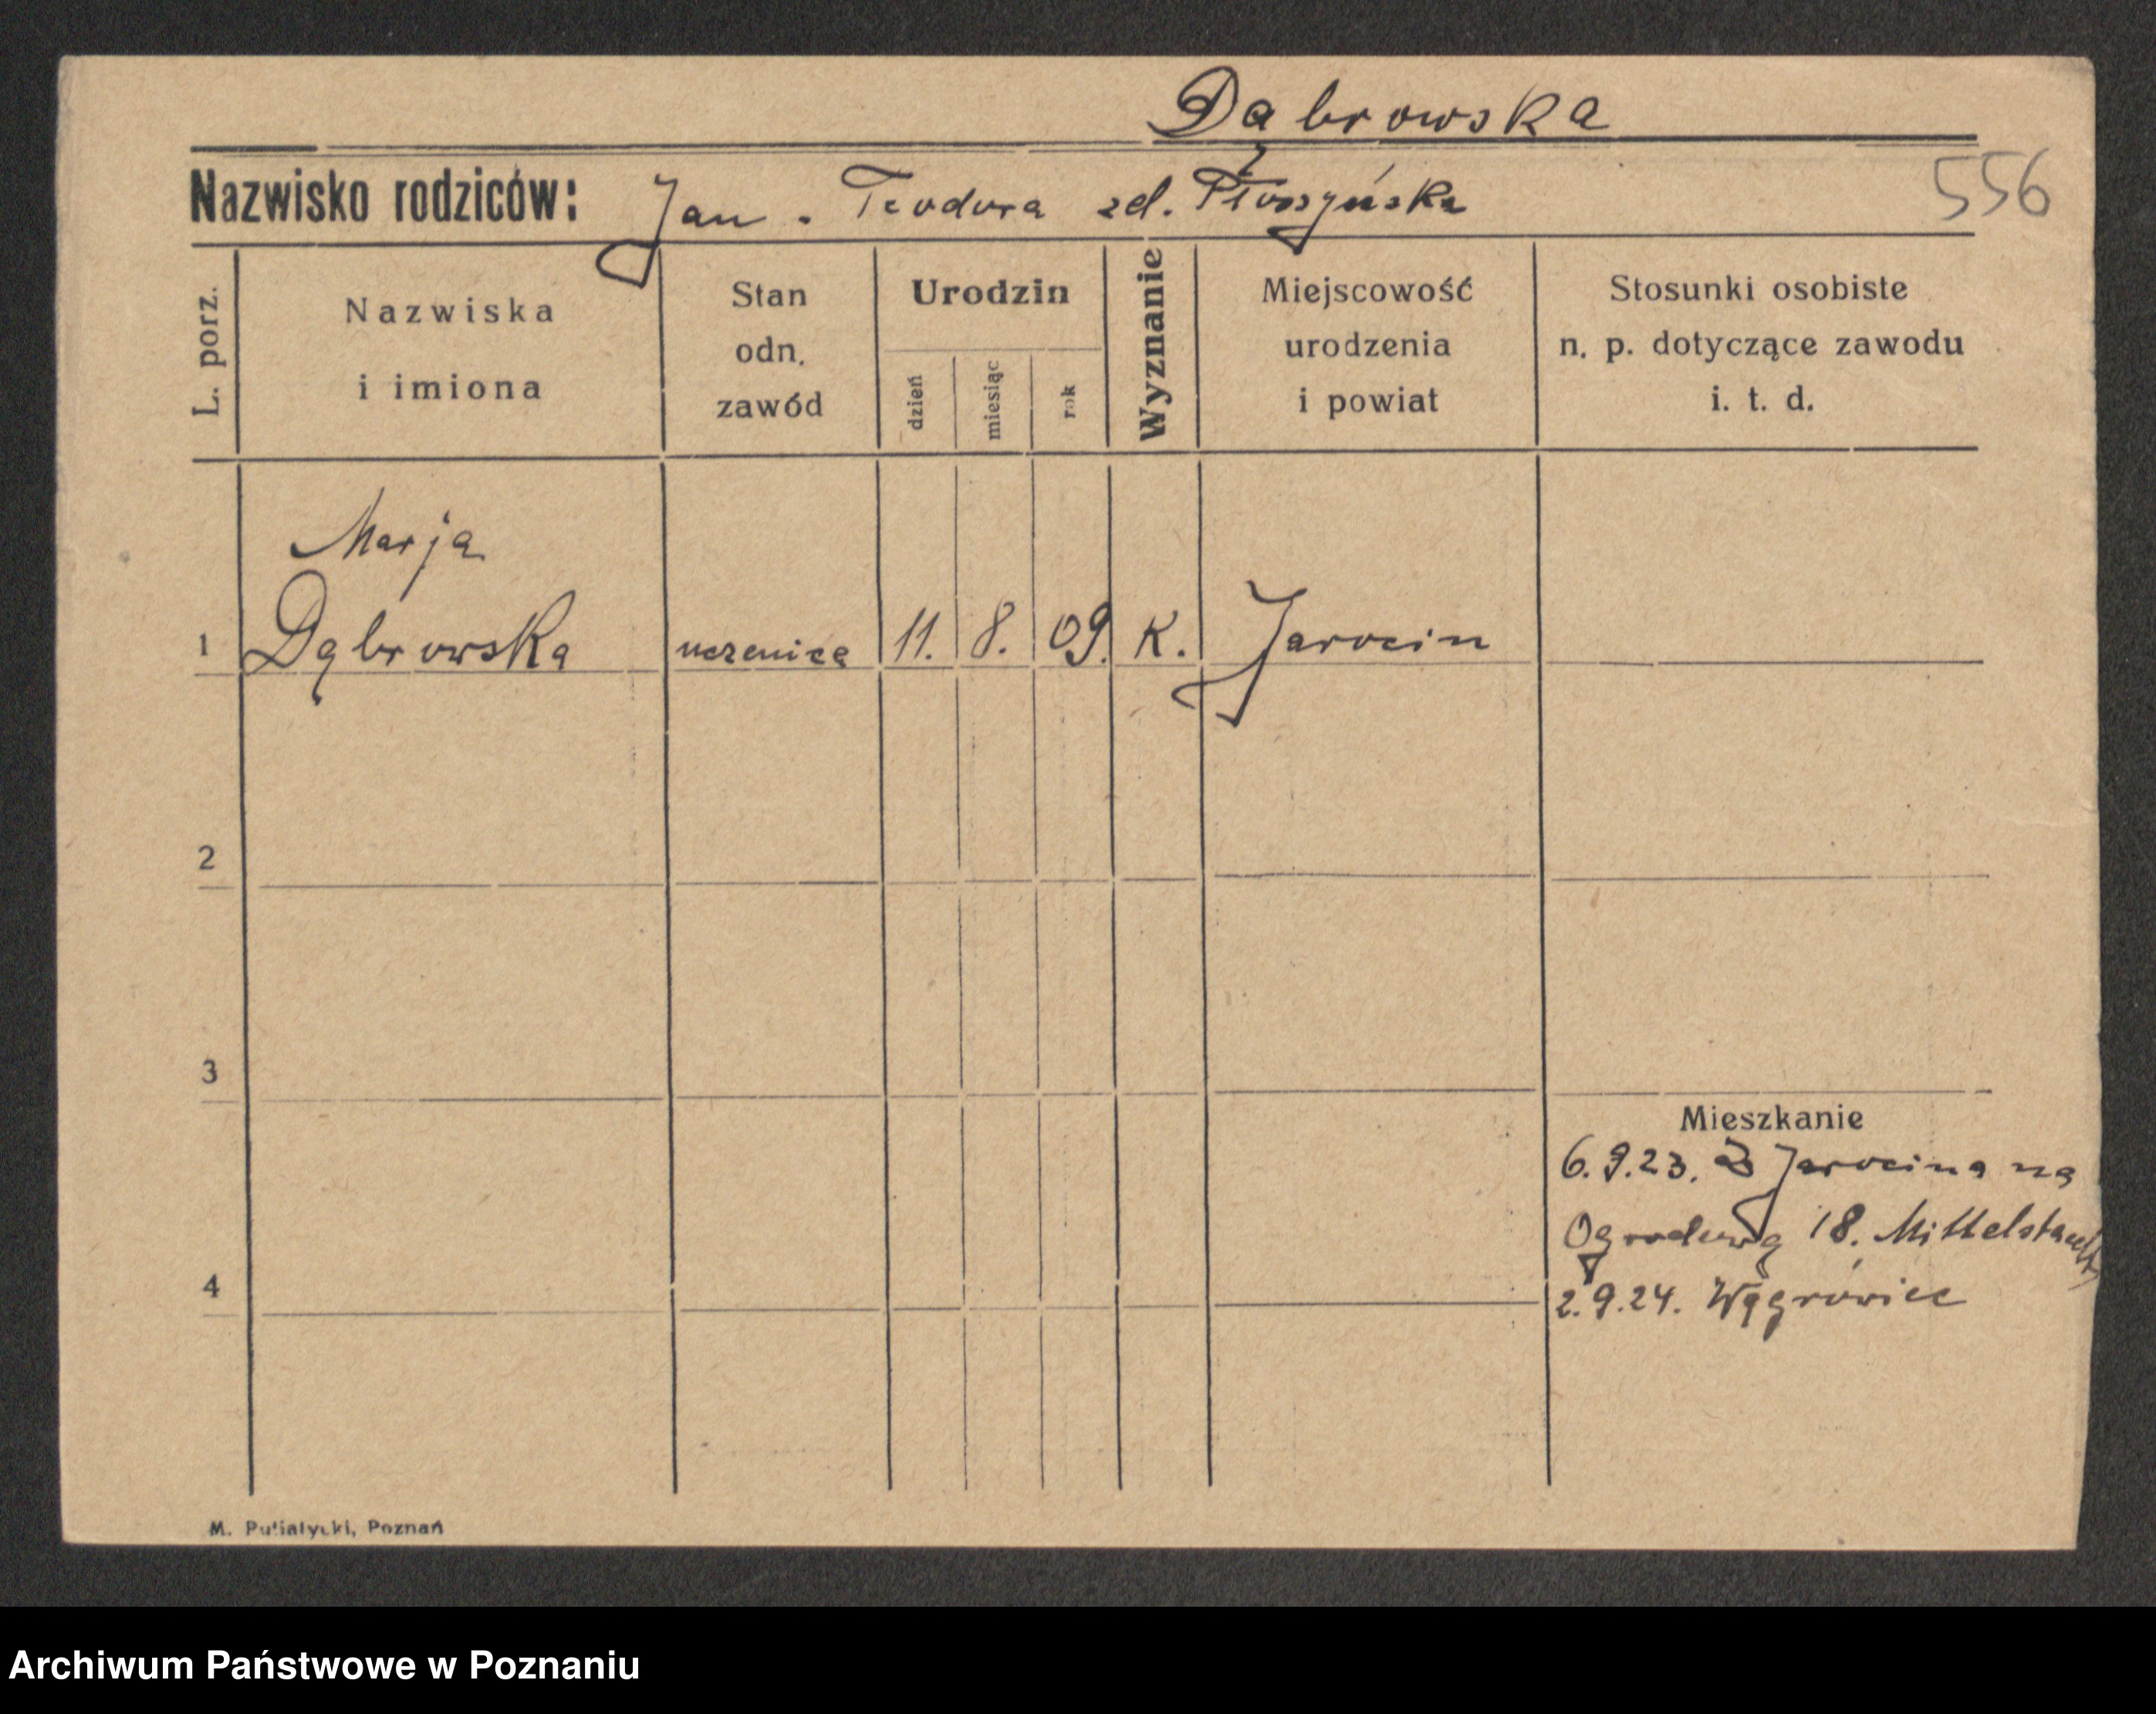 Dąbrowska
Nazwisko rodziców: Jan - Teodora zd. Płoszyńska
556
L. porz.
Nazwiska
i imiona
Stan
odn.
zawód
Urodzin
dzień
miesiąc
rok
Wyznanie
Miejscowość
urodzenia
i powiat
Stosunki osobiste
n. p. dotyczące zawodu
i. t. d.
Marja
1 Dąbrowska uczenica 11. 8. 09. K. Jarocin
2
3
Mieszkanie
6.9.23. Z Jarocina na
Ogrodową 18. Mittelstaedt
4
2.9.24. Wągrówiec
M. Putiatycki, Poznań
Archiwum Państwowe w Poznaniu